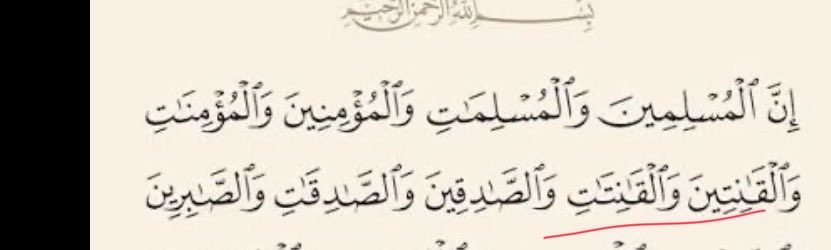 بِسْمِ ٱللَّهِ ٱلرَّحْمَٰنِ ٱلرَّحِيمِ
إِنَّ ٱلْمُسْلِمِينَ وَٱلْمُسْلِمَٰتِ وَٱلْمُؤْمِنِينَ وَٱلْمُؤْمِنَٰتِ
وَٱلْقَٰنِتِينَ وَٱلْقَٰنِتَٰتِ وَٱلصَّٰدِقِينَ وَٱلصَّٰدِقَٰتِ وَٱلصَّٰبِرِينَ